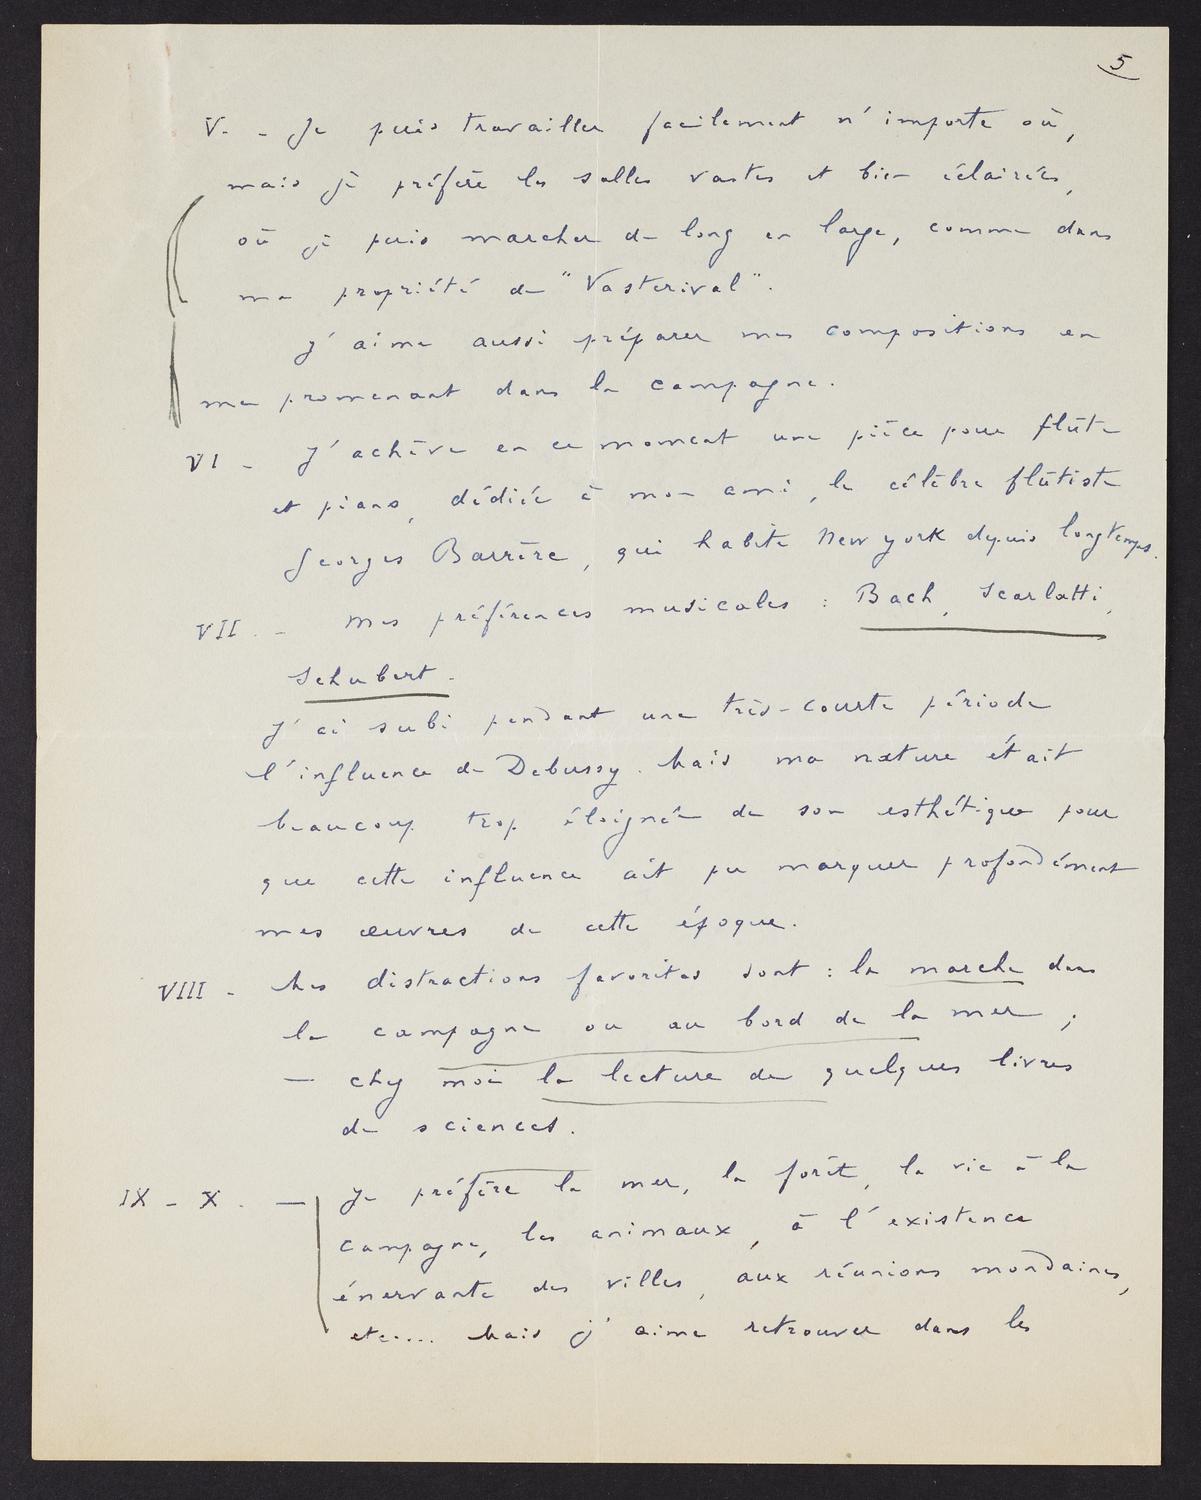 5
V. - Je puis travailler facilement n'importe où,
mais je préfère les salles vastes et bien éclairées,
où je puis marcher de long en large, comme dans
ma propriété de "Vasterival".
J'aime aussi préparer mes compositions en
me promenant dans la campagne.
VI - J'achève en ce moment une pièce pour flûte
et piano, dédiée à mon ami, le célèbre flûtiste
Georges Barrère, qui habite New york depuis longtemps.
VII. - Mes préférences musicales : Bach, Scarlatti,
Schubert.
J'ai subi pendant une très-courte période
l'influence de Debussy. Mais ma nature était
beaucoup trop éloignée de son esthétique pour
que cette influence ait pu marquer profondément
mes œuvres de cette époque.
VIII - Mes distractions favorites sont : la marche dans
la campagne ou au bord de la mer ;
— chez moi la lecture de quelques livres
de sciences.
IX - X. — Je préfère la mer, la forêt, la vie à la
campagne, les animaux, à l'existence
énervante des villes, aux réunions mondaines,
etc.... Mais j'aime retrouver dans les